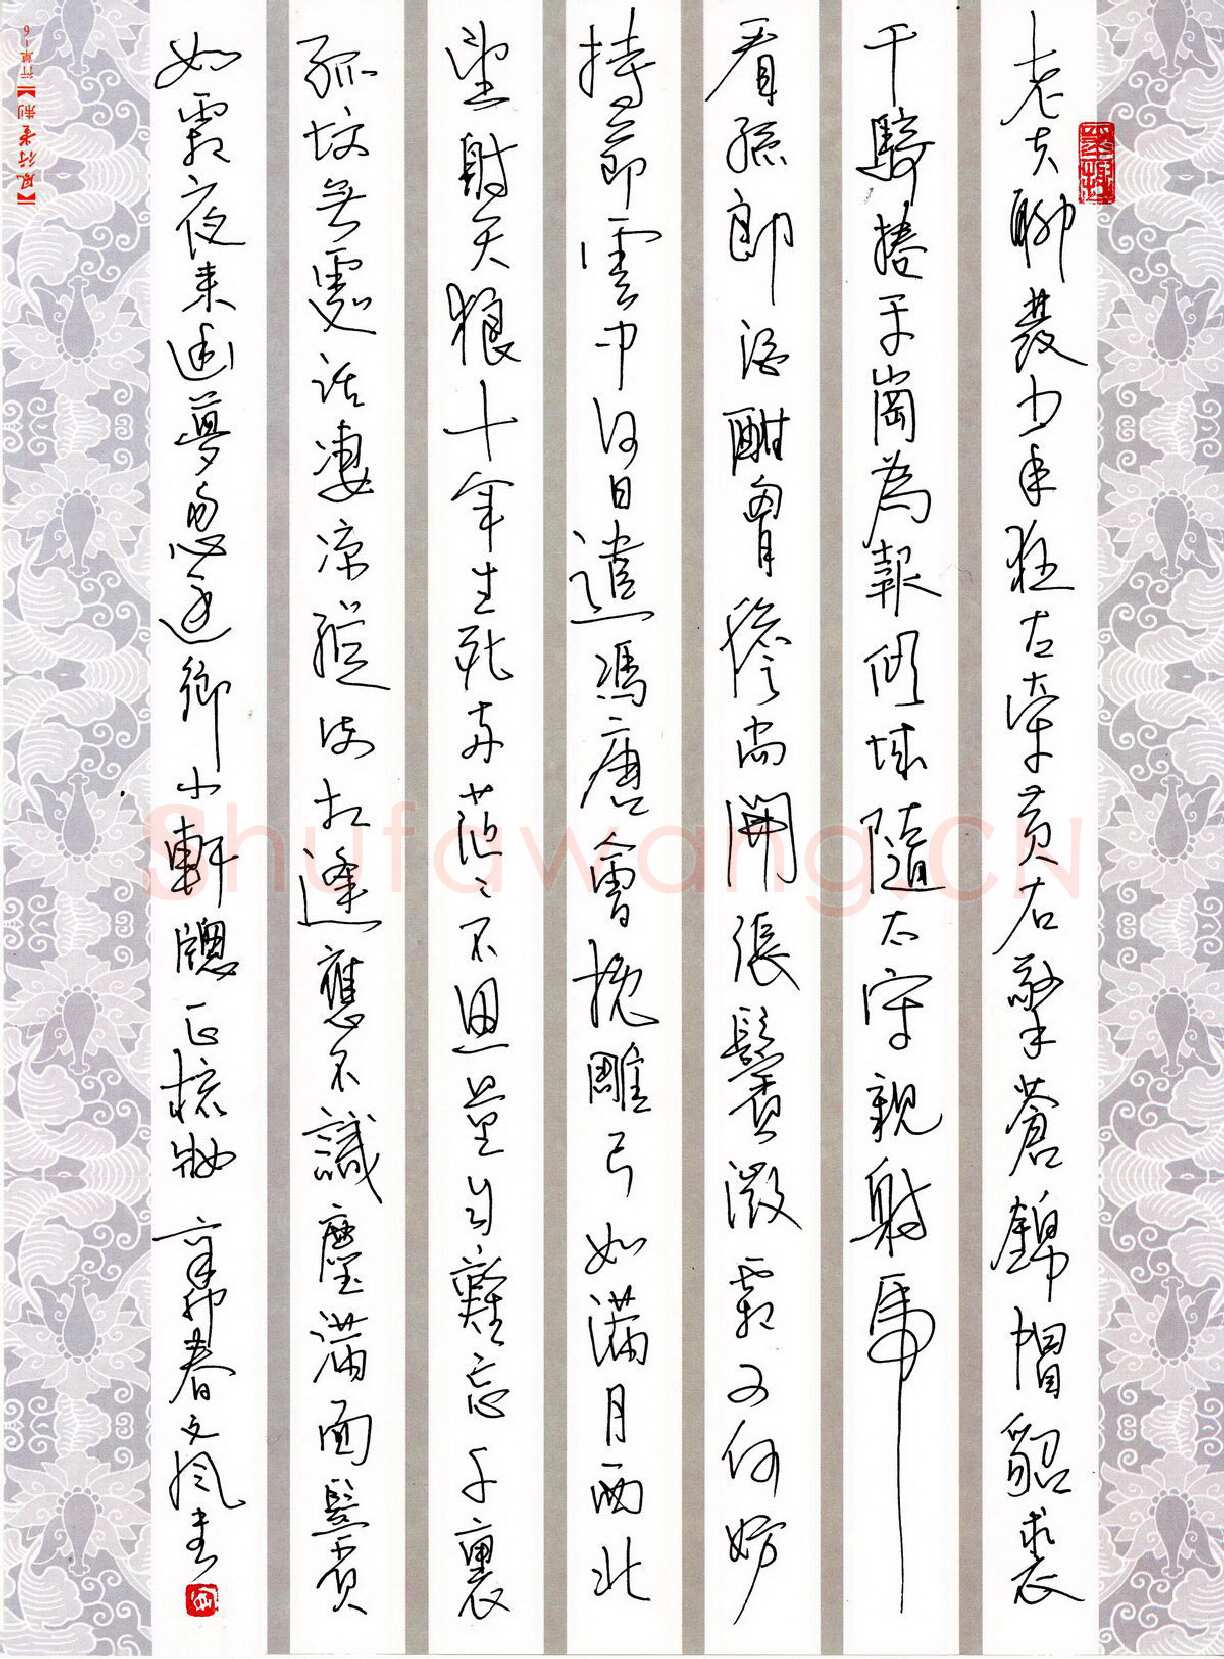 老夫聊發少年狂左牽黃右擎蒼錦帽貂裘
千騎捲平崗為報傾城隨太守親射虎
看孫郎酒酣胷膽尚開張鬢微霜又何妨
持節雲中何日遣馮唐會挽雕弓如滿月西北
望射天狼十年生死兩茫〻不思量自難忘千裏
孤墳無處話凄凉縱使相逢應不識塵滿面鬢
如霜夜來幽夢忽還鄉小軒牕正梳妝 辛卯春文風書
Shufawang.CN